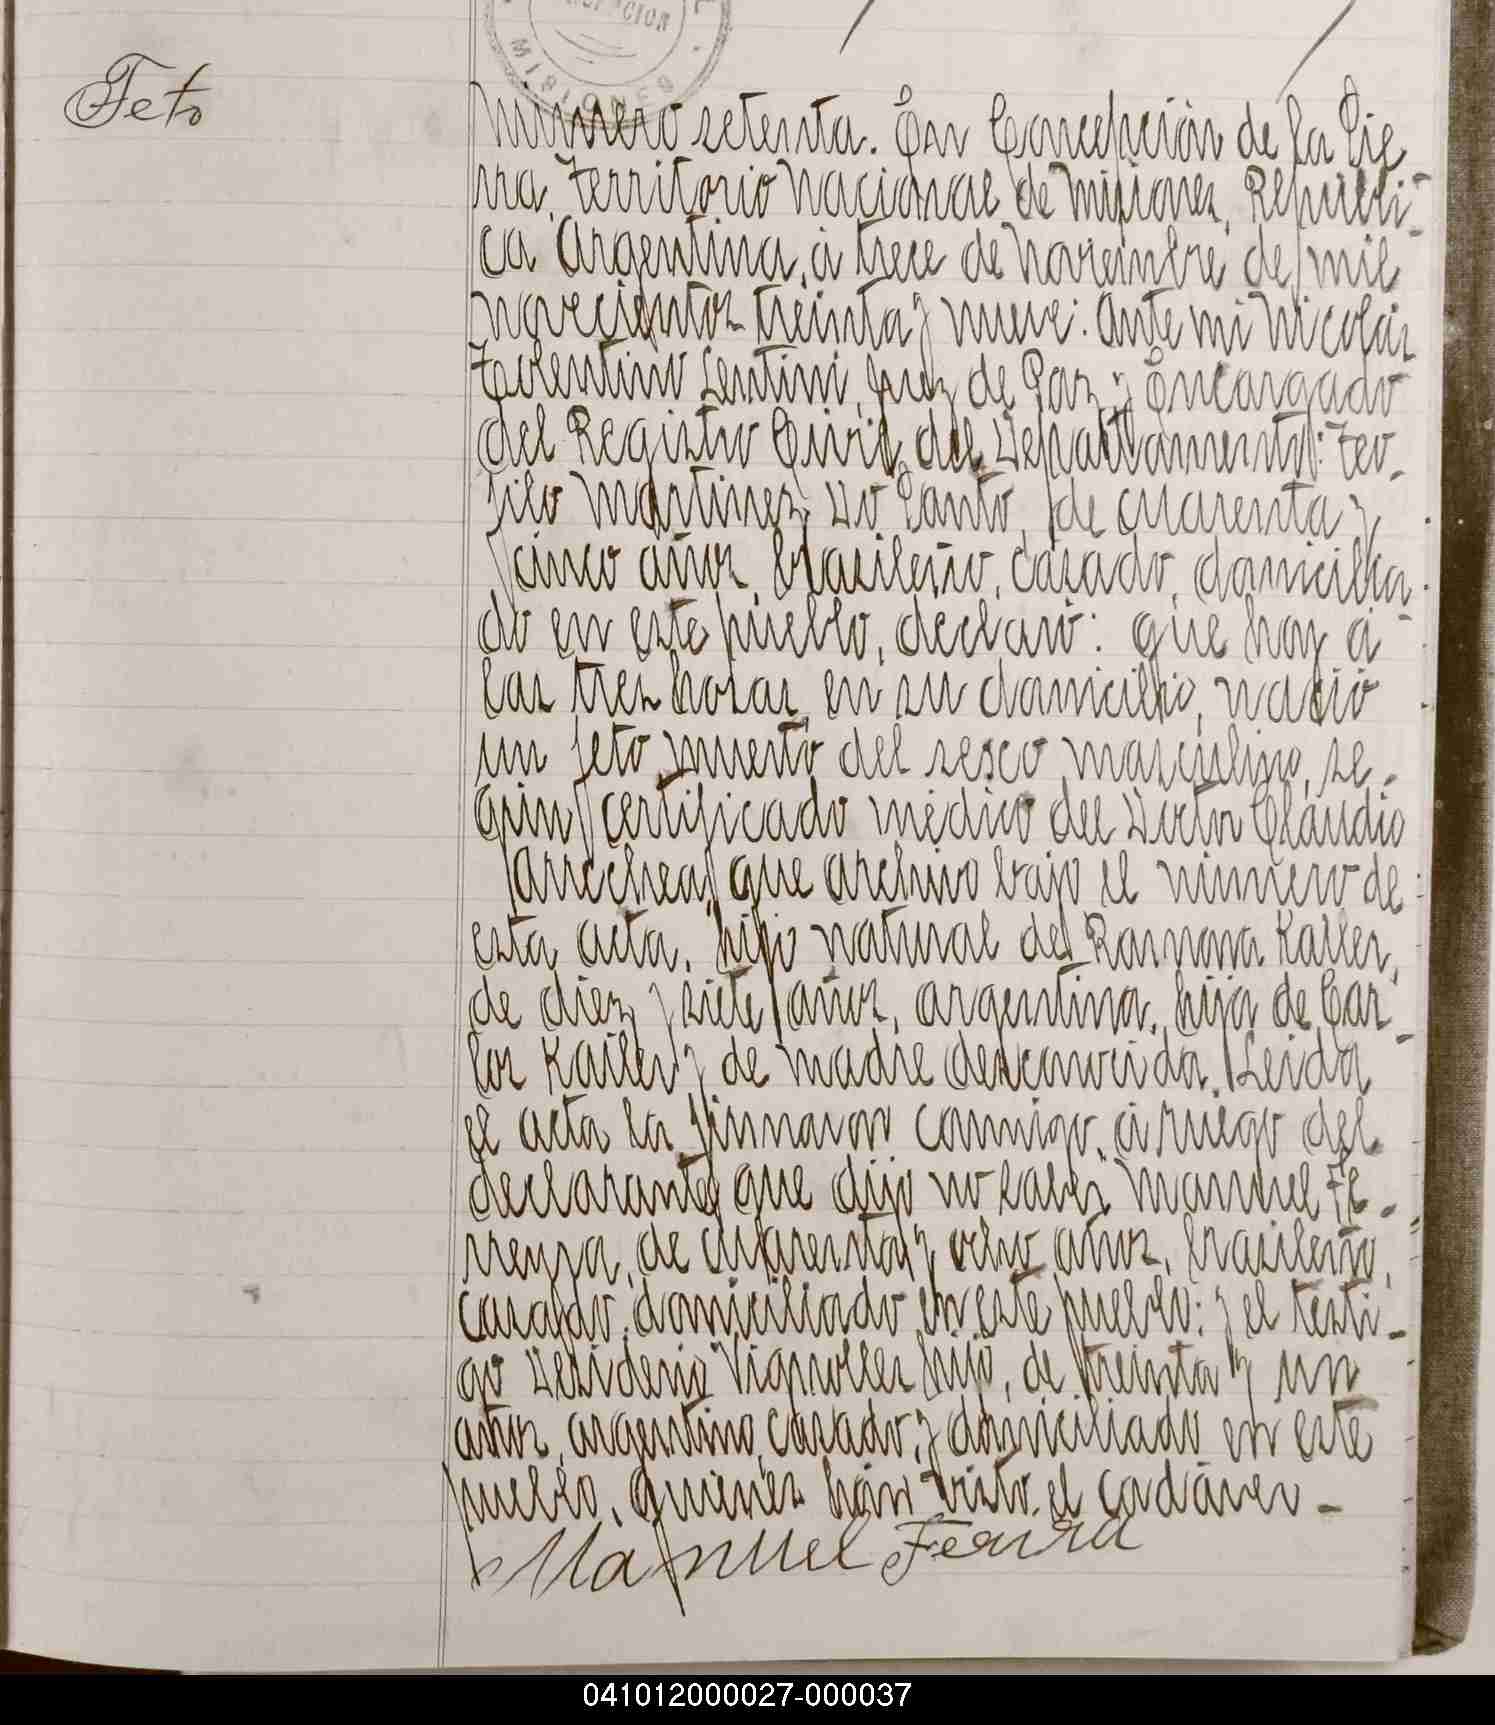 MISIONES
Feto
Número setenta. En Concepción de la Sie
rra, Territorio Nacional de Misiones, Repúbli-
ca Argentina, á trece de Noviembre de mil
novecientos treinta y nueve: Ante mi Nicolás
Tolentino Lentini, Juez de Paz y Encargado
del Registro Civil del Departamento: Teo-
filo Martinez Do Santo, de cuarenta y
cinco años, brasileño, casado, domicilia
do en este pueblo, declaró: que hoy á
las tres horas, en su domicilio, nació
un feto muerto del sexo masculino, se-
gún certificado médico del Doctor Claudio
Arrechea, que archivo bajo el número de
esta acta, hijo natural de Ramona Kaller,
de diez y siete años, argentina, hija de Car-
los Kailer y de madre desconocida. Leida
el acta la firmaron conmigo, á ruego del
declarante que dijo no saber Manuel Fe-
rreyra, de cuarenta y ocho años, brasileño,
casado, domiciliado en este pueblo: y el testi-
go Desiderio Vignolles hijo, de treinta y un
años, argentino, casado, y domiciliado en este
pueblo, quienes hán visto el cadáver-
Manuel Ferura
041012000027-000037